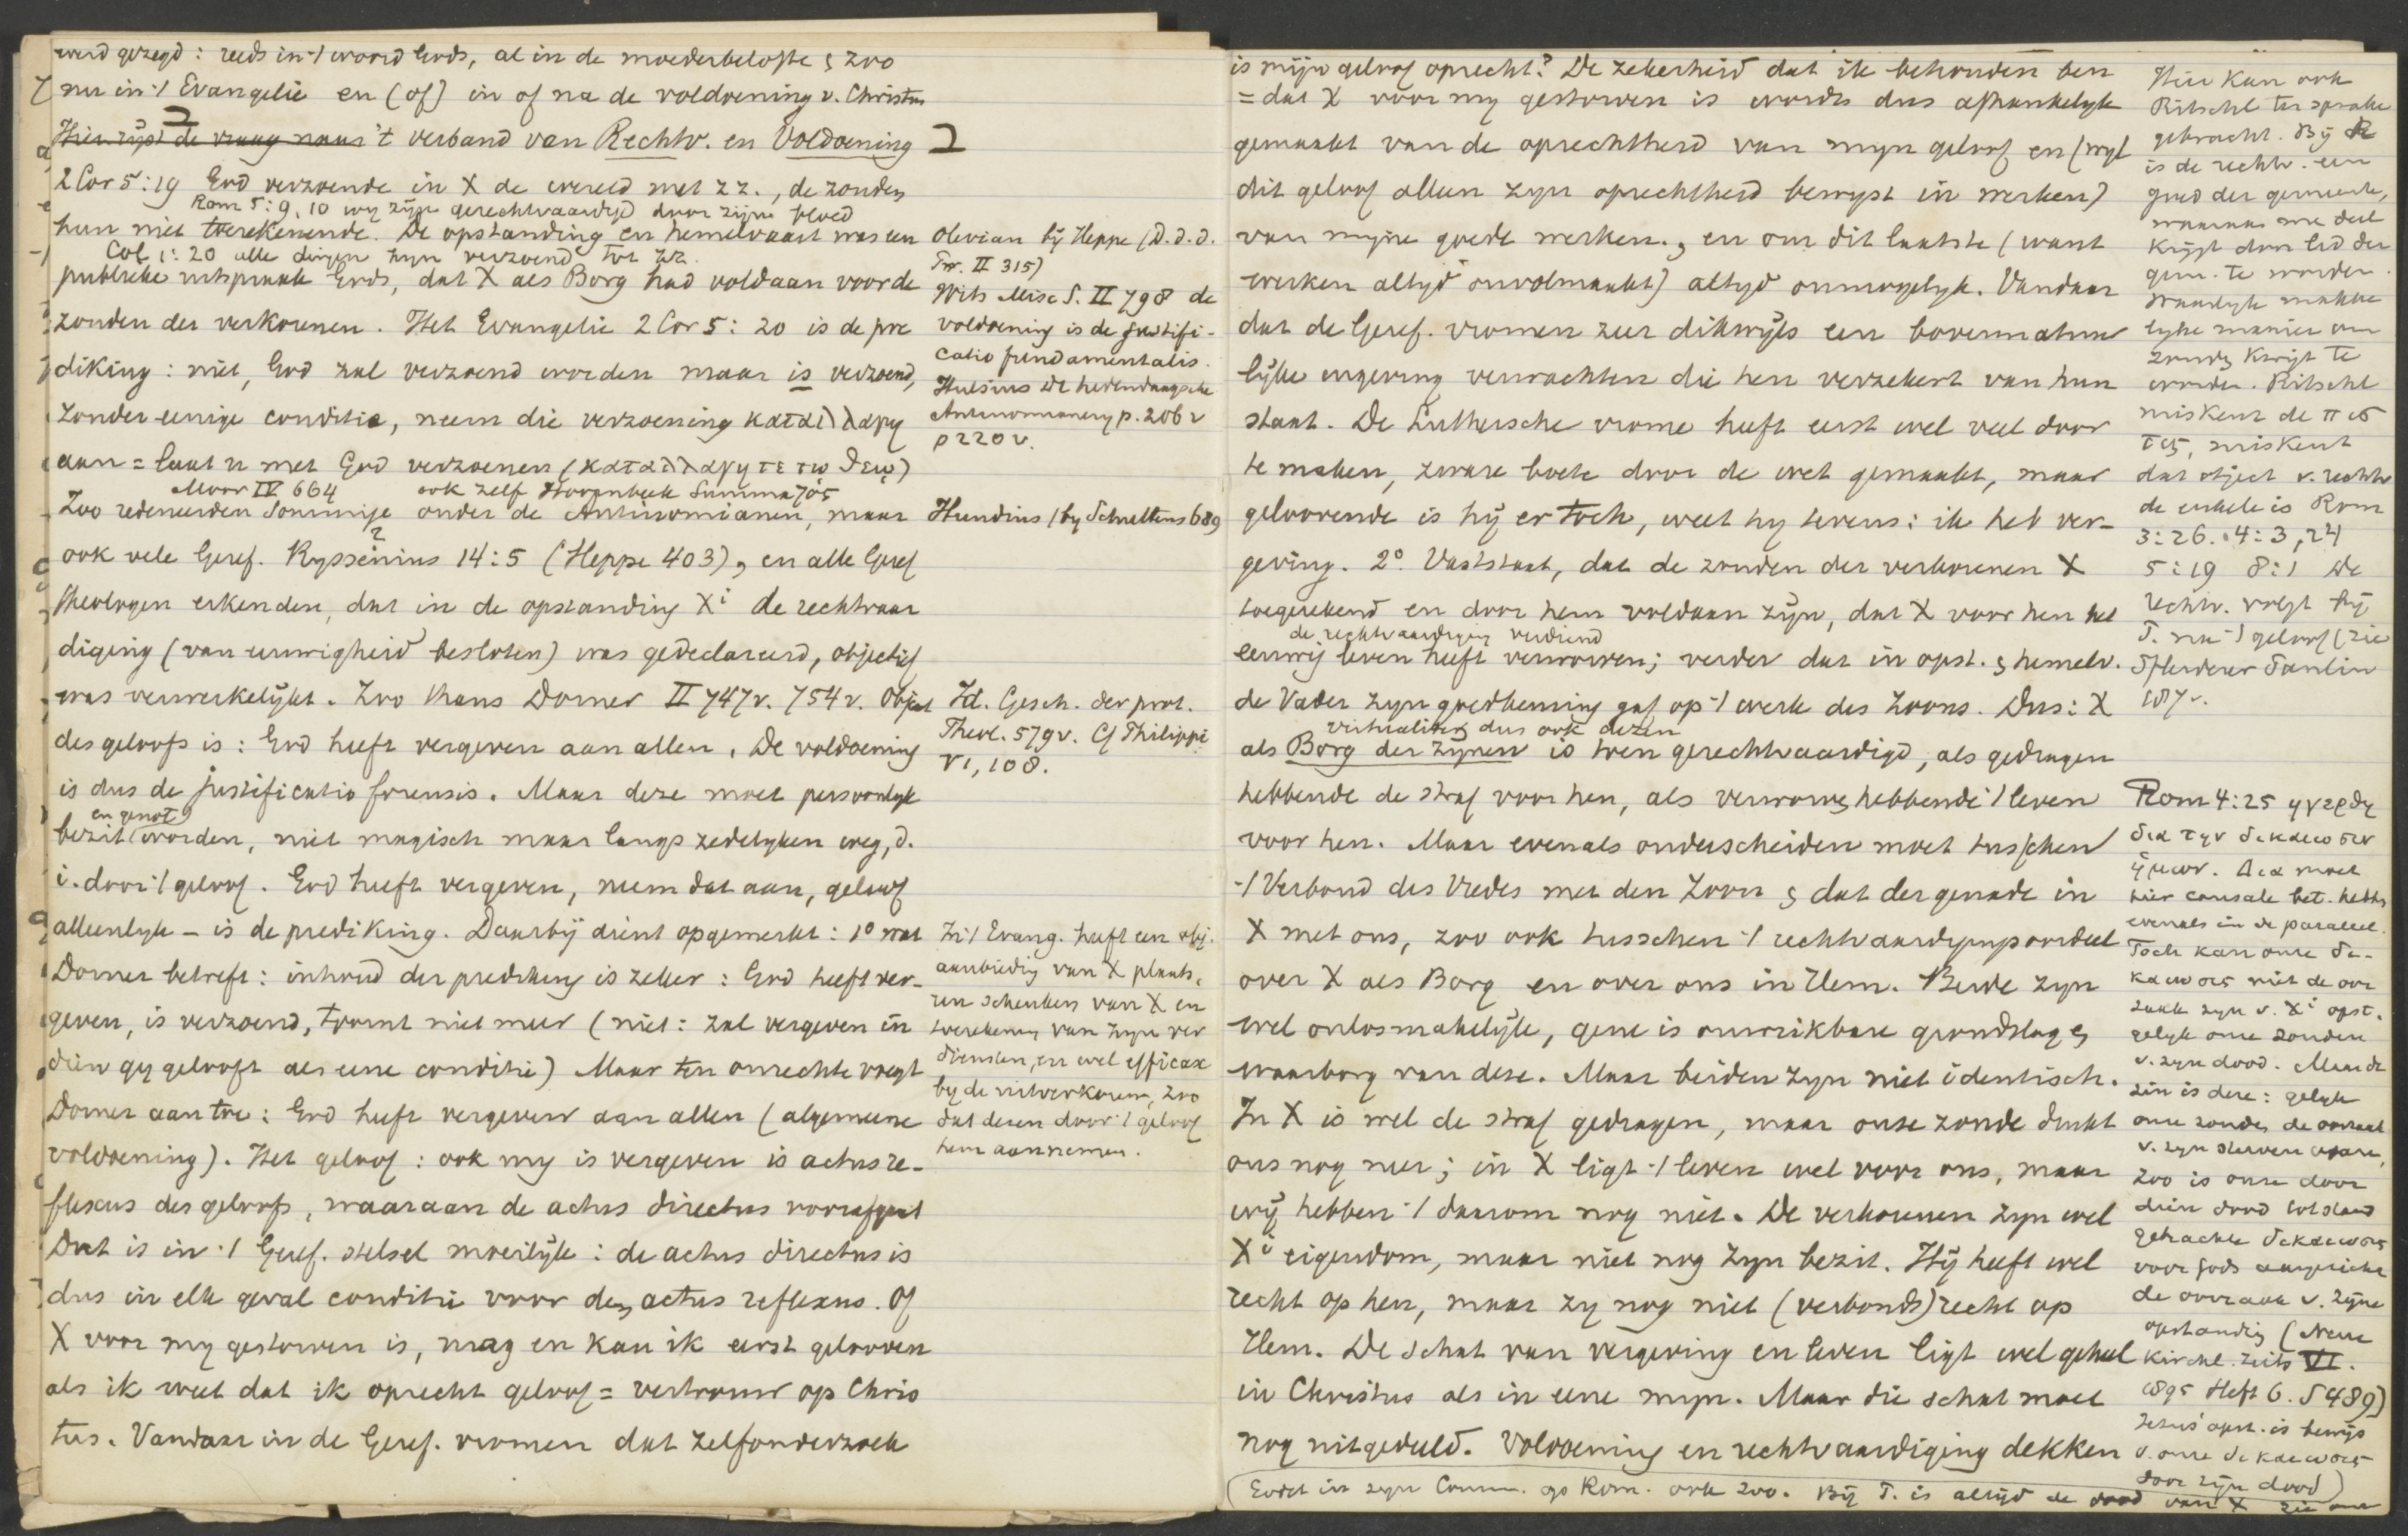 werd gezegd: reeds in 't woord Gods, al in de moederbelofte & zoo
nu in 't Evangelie en (of) in of na de voldoening v. Christus
Hier rijst de vraag naar 't verband van Rechtv. en Voldoening
2 Cor 5:19 God verzoende in X de wereld met zz., de zonden
Rom 5:9, 10 wy zijn gerechtvaardigd door zijn bloed
hun niet toerekenende. De opstanding en hemelvaart was een
Col 1:20 alle dingen hyn verzoend tot zz.
publieke uitspraak Gods, dat X als Borg had voldaan voor de
zonden der verkorenen. Het Evangelie 2 Cor 5:20 is de pre
diking: niet, God zal verzoend worden maar is verzoend,
zonder eenige conditie, neem die verzoening καταλλαγη
aan = laat u met God verzoenen (καταλλαγητε τω θεω)
Moor IV 664 ook zelf Hoornbeek Summa 705
Zoo redeneerden sommige onder de Antinomianen, maar
ook vele Geref. Ryssenius 14:5 (Heppe 403), en alle Geref
theologen erkenden, dat in de opstanding Xi de rechtvaar
diging (van eeuwigheid besloten) was gedeclareerd, objectief
was verwerkelijkt. Zoo thans Dorner II 747v. 754v. Object
des geloofs is: God heeft vergeven aan allen. De voldoening
is dus de justificatio forensis. Maar deze moet persoonlyk
en genot
bezit worden, niet magisch maar langs zedelyken weg, d.
i. door 't geloof. God heeft vergeven, neem dat aan, geloof
alleenlyk – is de prediking. Daarbij dient opgemerkt: 1o wat
Dorner betreft: inhoud der prediking is zeker: God heeft ver-
geven, is verzoend, toornt niet meer (niet: zal vergeven in
dien gy gelooft als eene conditie) Maar ten onrechte voegt
Dorner aan toe: God heeft vergeven aan allen (algemeene
voldoening). Het geloof: ook my is vergeven is actus re-
flexus des geloofs, waaraan de actus directus voorafgaat
Dat is in 't Geref. stelsel moeilijk: de actus directus is
dus in elk geval conditie voor den actus reflexus. Of
X voor my gestorven is, mag en kan ik eerst gelooven
als ik weet dat ik oprecht geloof = vertrouw op Chris
tus. Vandaar in de Geref. vromen dat zelfonderzoek
Olevian bij Heppe (D.d.d.
Pr. II 315)
Wits Misc S. II 798 de
voldoening is de justifi-
catio fundamentalis.
Hulsius de hedendaagsche
Antinomianery p. 206v
p 220v.
Hundius (by Schultens 689
Id. Gesch. der prot.
Theol. 579v. Cf Philippi
V1, 108.
In 't Evang. heeft een obj.
aanbiedig van X plaats,
een schenken van X en
toerekening van zyn ver
diensten, en wel efficax
by de uitverkorenen, zoo
dat dezen door 't geloof
hem aannemen.
is mijn geloof oprecht? De zekerheid dat ik behouden ben
= dat X voor my gestorven is wordt dus afhankelyk
gemaakt van de oprechtheid van myn geloof en (wyl
dit geloof alleen zyn oprechtheid bewyst in werken)
van mijne goede werken., en om dit laatste (want
werken altyd onvolmaakt) altyd onmogelyk. Vandaar
dat de Geref. vromen zeer dikwyls een bovennatuur
lijke ingeving verwachten die hen verzekert van hun
staat. De Luthersche vrome heeft eerst wel veel door
te maken, zware boete door de wet gemaakt, maar
geloovende is hij er toch, weet hy tevens: ik heb ver-
geving. 2o. Vaststaat, dat de zonden der verkorenen X
toegerekend en door hem voldaan zijn, dat X voor hen het
de rechtvaardiging verdiend
eeuwig leven heeft verworven; verder dat in opst. & hemelv.
de Vader zyn goedkeuring gaf op 't werk des Zoons. Dus: X
virtualiter dus ook dezen
als Borg der zijnen is toen gerechtvaardigd, als gedragen
hebbende de straf voor hen, als verworven hebbende 't leven
voor hen. Maar evenals onderscheiden moet tusschen
't Verbond des Vredes met den Zoon & dat der genade in
X met ons, zoo ook tusschen 't rechtvaardigingsoordeel
over X als Borg en over ons in Hem. Beide zyn
wel onlosmakelijk, gene is onwrikbare grondslag &
waarborg van deze. Maar beiden zyn niet identisch.
In X is wel de straf gedragen, maar onze zonde drukt
ons nog neer; in X ligt 't leven wel voor ons, maar
wij hebben 't daarom nog niet. De verkorenen zyn wel
Xi eigendom, maar niet nog zyn bezit. Hij heeft wel
recht op hen, maar zy nog niet (verbonds)recht op
Hem. De schat van vergeving en leven ligt wel geheel
in Christus als in eene myn. Maar die schat moet
nog uitgedeeld. Voldoening en rechtvaardiging dekken
Hier kan ook
Ritschl ter sprake
gebracht. Bij R
is de rechtv. een
goed der gemeente,
waaraan me deel
krijgt door lid der
gem. te worden.
zonder krijgt te
worden. Ritschl
miskent de πισ
τις, miskent
dat object v. rechtv
de enkele is Rom
3:26. 4:3, 24
5:19 8:1 De
rechtv. volgt bij
P. na 't geloof (zie
Pfleiderer Paulin
187v.
Rom 4:25 ηγερθη
δια την δικαιωσιν
ημων. Δια moet
hier causale bet. hebb.
evenals in de parallel.
Toch kan onze δι-
καιωσις niet de oor
zaak zyn v. Xi opst.
gelyk onze zonden
v. zyn dood. Maar de
zin is deze: gelyk
onze zonden de oorzaak
v. zyn sterven waren,
zoo is onze door
dien dood tot stand
gebrachte δικαιωσις
voor Gods aangezicht
de oorzaak v. zijne
opstanding (Neue
Kirchl. Zeits VI.
1895 Heft 6. S 489)
Jezus' opst. is bewijs
v. onze δικαιωσις
door zijn dood)
Godet in zyn Comm. op Rom. ook zoo. Bij P. is altijd de dood van X